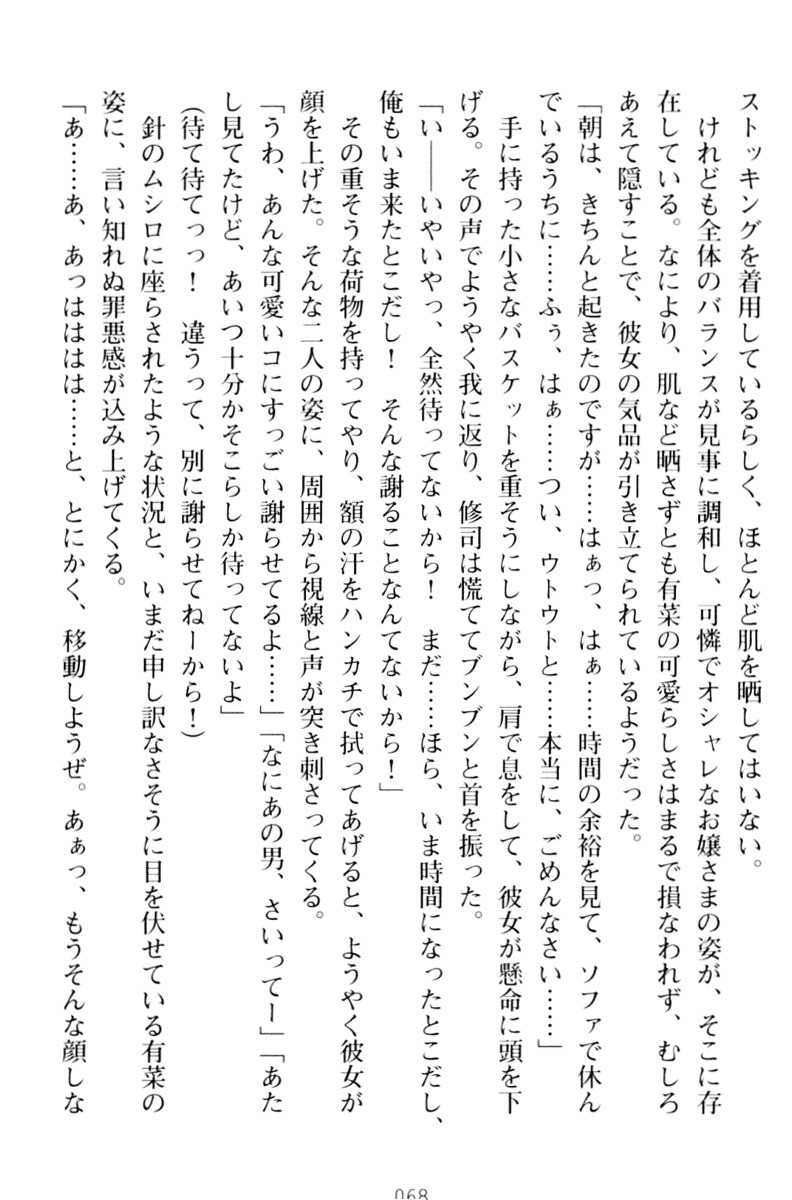 ストッキングを着用しているらしく、ほとんど肌を晒してはいない。
けれども全体のバランスが見事に調和し、可憐でオシャレなお嬢さまの姿が、そこに存
在している。なにより、肌など晒さずとも有菜の可愛らしさはまるで損なわれず、むしろ
あえて隠すことで、彼女の気品が引き立てられているようだった。
「朝は、きちんと起きたのですが……はぁっ、はぁ……時間の余裕を見て、ソファで休ん
でいるうちに……ふぅ、はぁ……つい、ウトウトと……本当に、ごめんなさい……」
手に持った小さなバスケットを重そうにしながら、肩で息をして、彼女が懸命に頭を下
げる。その声でようやく我に返り、修司は慌ててブンブンと首を振った。
「い――いやいやっ、全然待ってないから！　まだ……ほら、いま時間になったとこだし、
俺もいま来たとこだし！　そんな謝ることなんてないから！」
その重そうな荷物を持ってやり、額の汗をハンカチで拭ってあげると、ようやく彼女が
顔を上げた。そんな二人の姿に、周囲から視線と声が突き刺さってくる。
「うわ、あんな可愛いコにすっごい謝らせてるよ……」「なにあの男、さいってー」「あた
し見てたけど、あいつ十分かそこらしか待ってないよ」
（待て待てっっ！　違うって、別に謝らせてねーから！）
針のムシロに座らされたような状況と、いまだ申し訳なさそうに目を伏せている有菜の
姿に、言い知れぬ罪悪感が込み上げてくる。
「あ……あ、あっはははは……と、とにかく、移動しようぜ。あぁっ、もうそんな顔しな
068